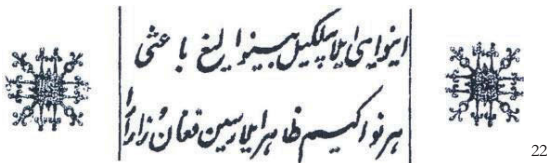 اینوای ایلا پیلکیل بینوا لیغ باعثی
هر نوا کیم ظاهر ایلارسین فغان زار
22